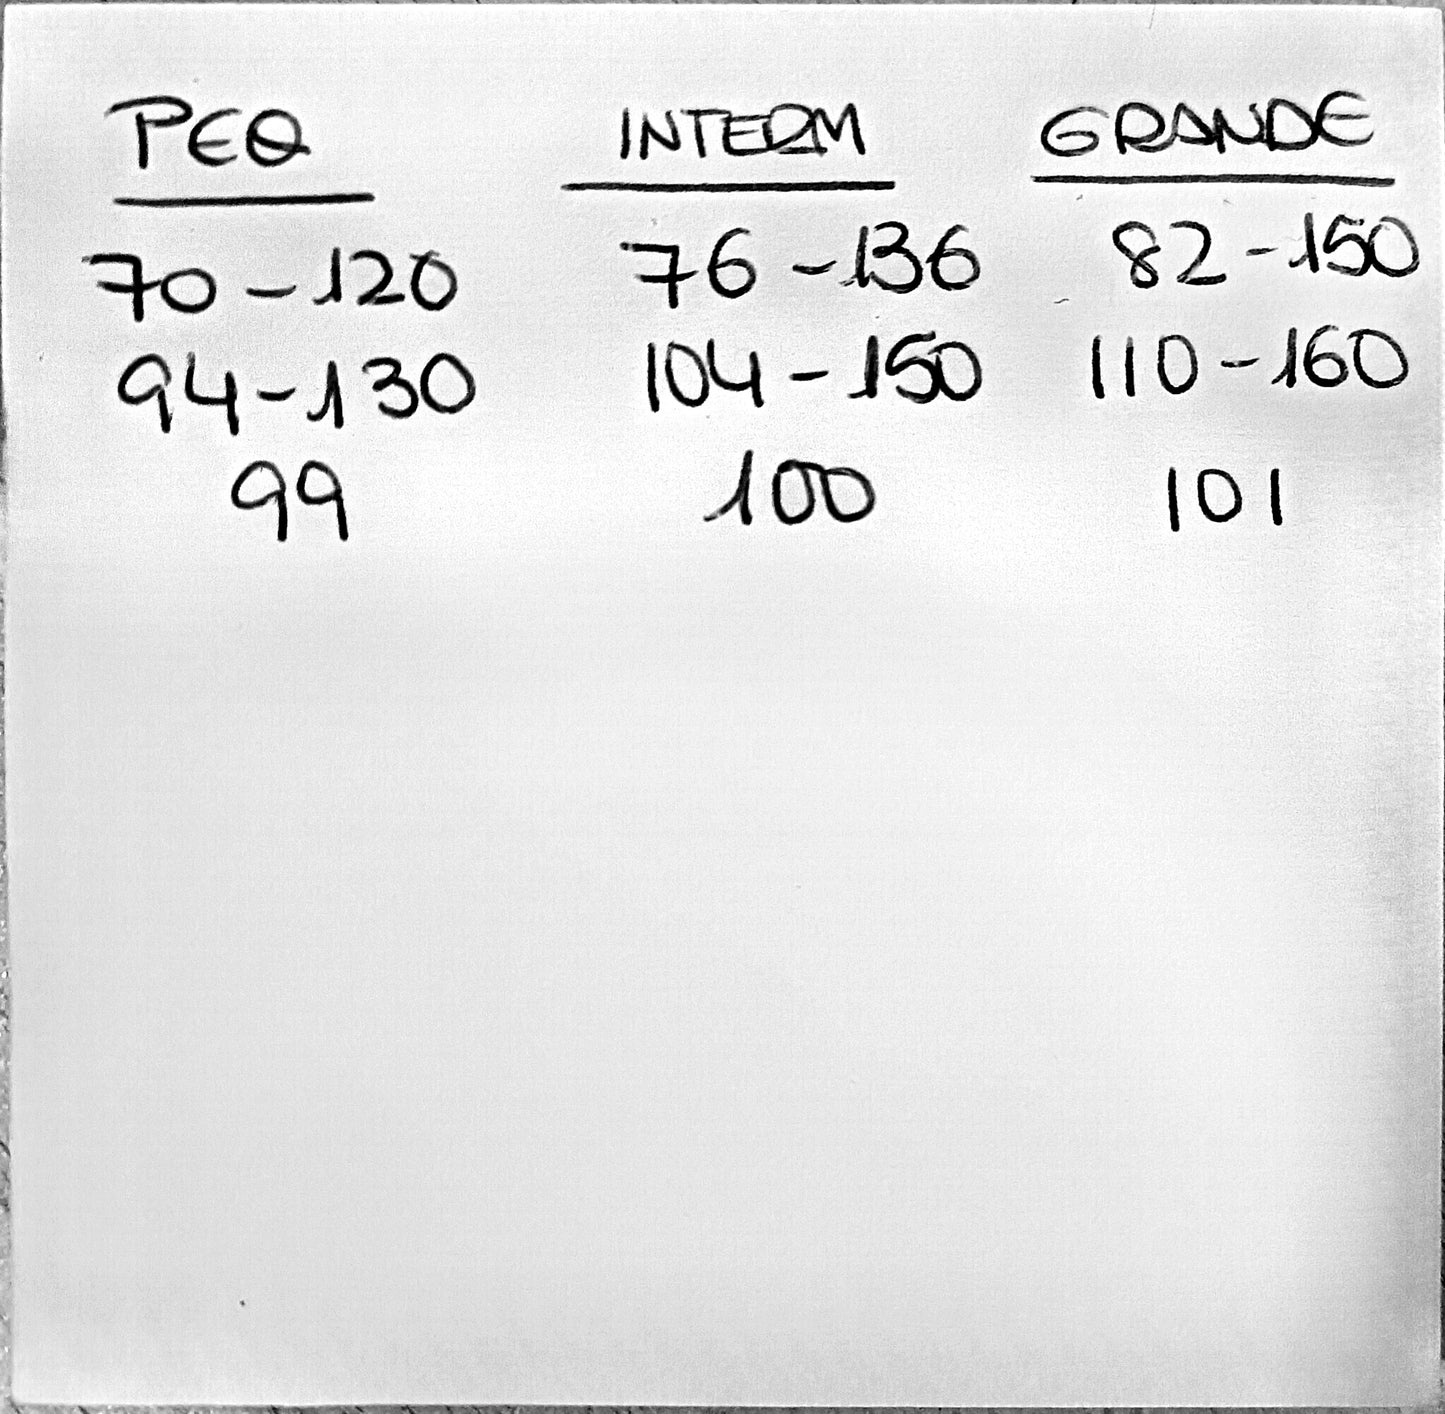 PEQ INTERM GRANDE
70-120 76-136 82-150
94-130 104-150 110-160
99 100 101